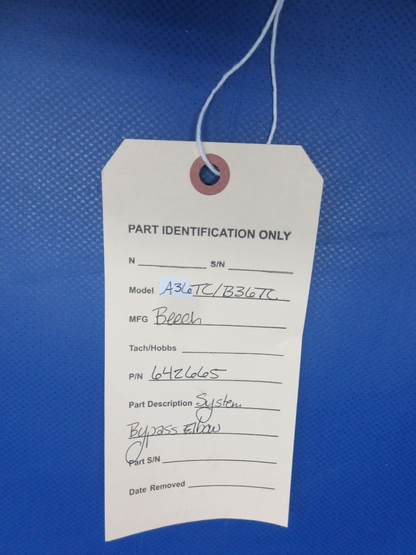 PART IDENTIFICATION ONLY
N S/N
Model A36TC/B36TC
MFG Beech
Tach/Hobbs
P/N 642665
Part Description System
Bypass Elbow
Part S/N
Date Removed